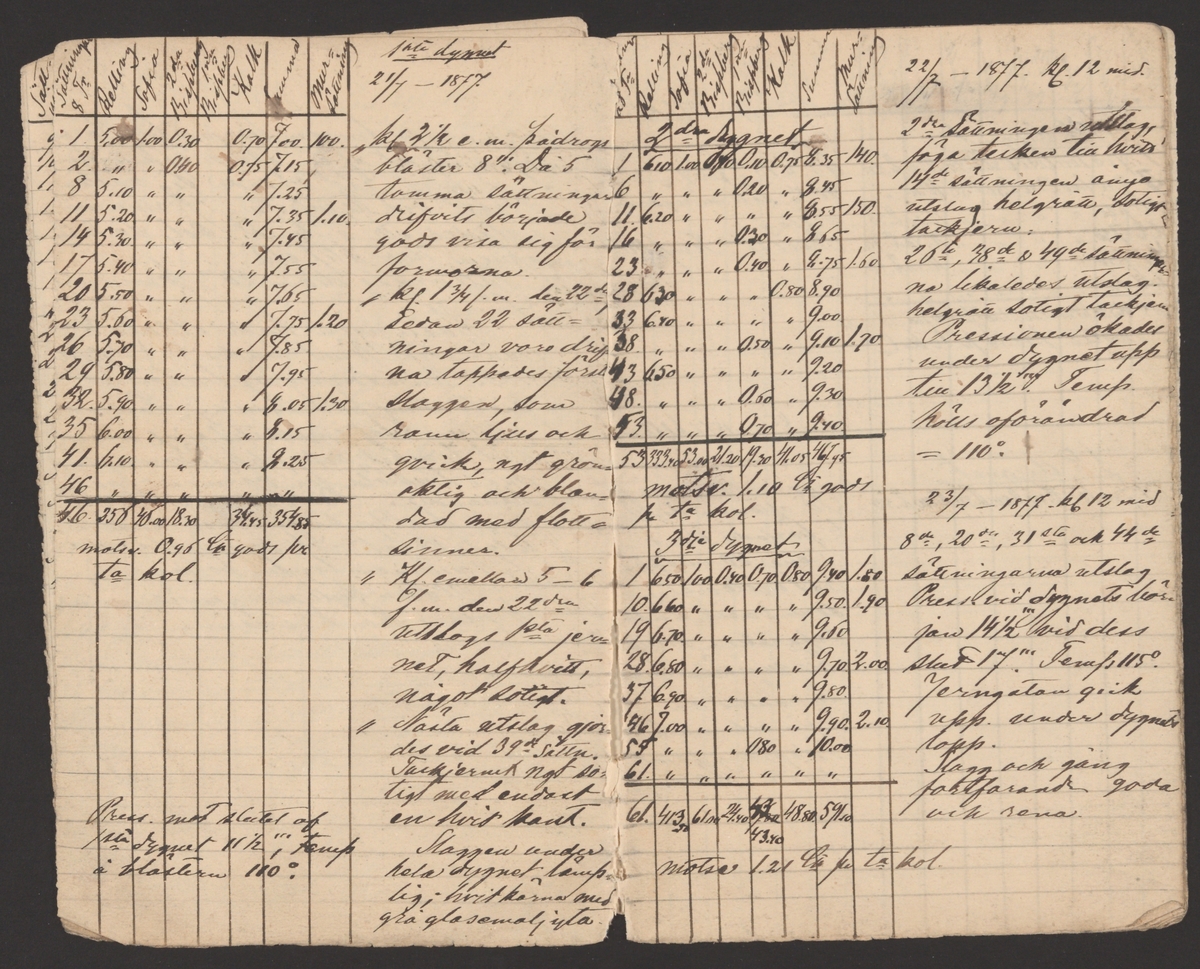 1sta dygnet
21/7 – 1877.
Sättningar
Relling Sofia 2dra Bispberg 1sta Bispberg Kalk Summa Mur-sättning
1 5.00 1.00 0.30 0.70 7.00 100.
2. „ „ 0.40 0.75 7.15
8 5.10 „ „ „ 7.25
11 5.20 „ „ „ 7.35 1.10.
14 5.30 „ „ „ 7.45
17 5.40 „ „ „ 7.55
20 5.50 „ „ „ 7.65
23 5.60 „ „ „ 7.75 1.20
26 5.70 „ „ „ 7.85
29 5.80 „ „ „ 7.95
32. 5.90 „ „ 8.05 1.30
35 6.00 „ „ 8.15
41. 6.10 „ „ 8.25
46 „ „ „ „ „
46 256 46.00 18.30 34.45 354.85
motsv. 0.96 Ctr gods pr
ta kol.
Press. mot slutet af
1sta dygnet 11½ ''', Temp
å blästern 110°.
„ kl. 2½ e.m. pådrogs
bläster 8'''. Då 5
tomma sättningar
drifvits började
gods visa sig för
formorna.
„ Kl. 1¾ f.m. den 22dra,
sedan 22 sätt=
ningar voro drif
na tappades först
slaggen, som
rann ljus och
qvick, ngt grön
aktig och blan
dad med flott=
sinner.
„ Kl. emellan 5–6
f.m. den 22dra
utslogs 1sta jer-
net, halfhvitt,
något sotigt.
„ Nästa utslag gjor
des vid 39de Sättn.
Tackjernet ngt so-
tigt med endast
en hvit kant.
Slaggen under
hela dygnet lämp-
lig; hvit kärna med
grå glasemaljyta.
Relling Sofia 2dra Bispberg 1sta Bispberg Kalk Summa Mur-sättning
2dra dygnet
1 6.10 1.00 0.40 0.10 0.75 8.35 140.
6 „ „ „ 0.20 „ 8.45
11. 6.20 „ „ „ „ 8.55 150.
16 „ „ „ 0.30 „ 8.65
23. „ „ „ 0.40 „ 8.75 1.60
28 6.30 „ „ „ 0.80 8.90
33 6.40 „ „ „ „ 9.00
38 „ „ „ 0.50 „ 9.10 1.70
43 6.50 „ „ „ „ 9.20
48. „ „ „ 0.60 „ 9.30
53. „ „ „ 0.70 „ 9.40
53 333.40 53.00 21.20 19.30 41.05 467.95
motsv. 1.10 Ctr gods
pr ta kol.
3dje dygnet
1 6.50 1.00 0.40 0.70 0.80 9.40 1.80
10. 6.60 „ „ „ „ 9.50. 1.90
19 6.70 „ „ „ „ 9.60
28. 6.80 „ „ „ „ 9.70 2.00
37 6.90 „ „ „ „ 9.80.
46 7.00 „ „ „ „ 9.90. 2.10
55 „ „ „ 0.80 „ 10.00
61. „ „ „ „ „ „
61. 413.50 61.00 24.40 43.40 48.80 591.10
motsv 1.21 Ctr pr ta kol.
22/7 – 1877. kl. 12 mid.
2dra Sättningen utslag,
föga tecken till hvitt
14de sättningen ånyo
utslag helgrått, sotigt
tackjern.
26te, 38de & 49de sättningar
na likaledes utslag.
helgrått sotigt tackjern
Pressionen ökades
under dygnet upp
till 13½'''. Temp.
hölls oförändrad
= 110°.
23/7 – 1877. kl. 12 mid
8de, 20de, 31sta och 44de
sättningarna utslag
Press. vid dygnets bör-
jan 14½''' vid dess
slut 17'''. Temp 115°.
Jerngåtan gick
upp. under dygnets
lopp.
Slagg och gång
fortfarande goda
och rena.